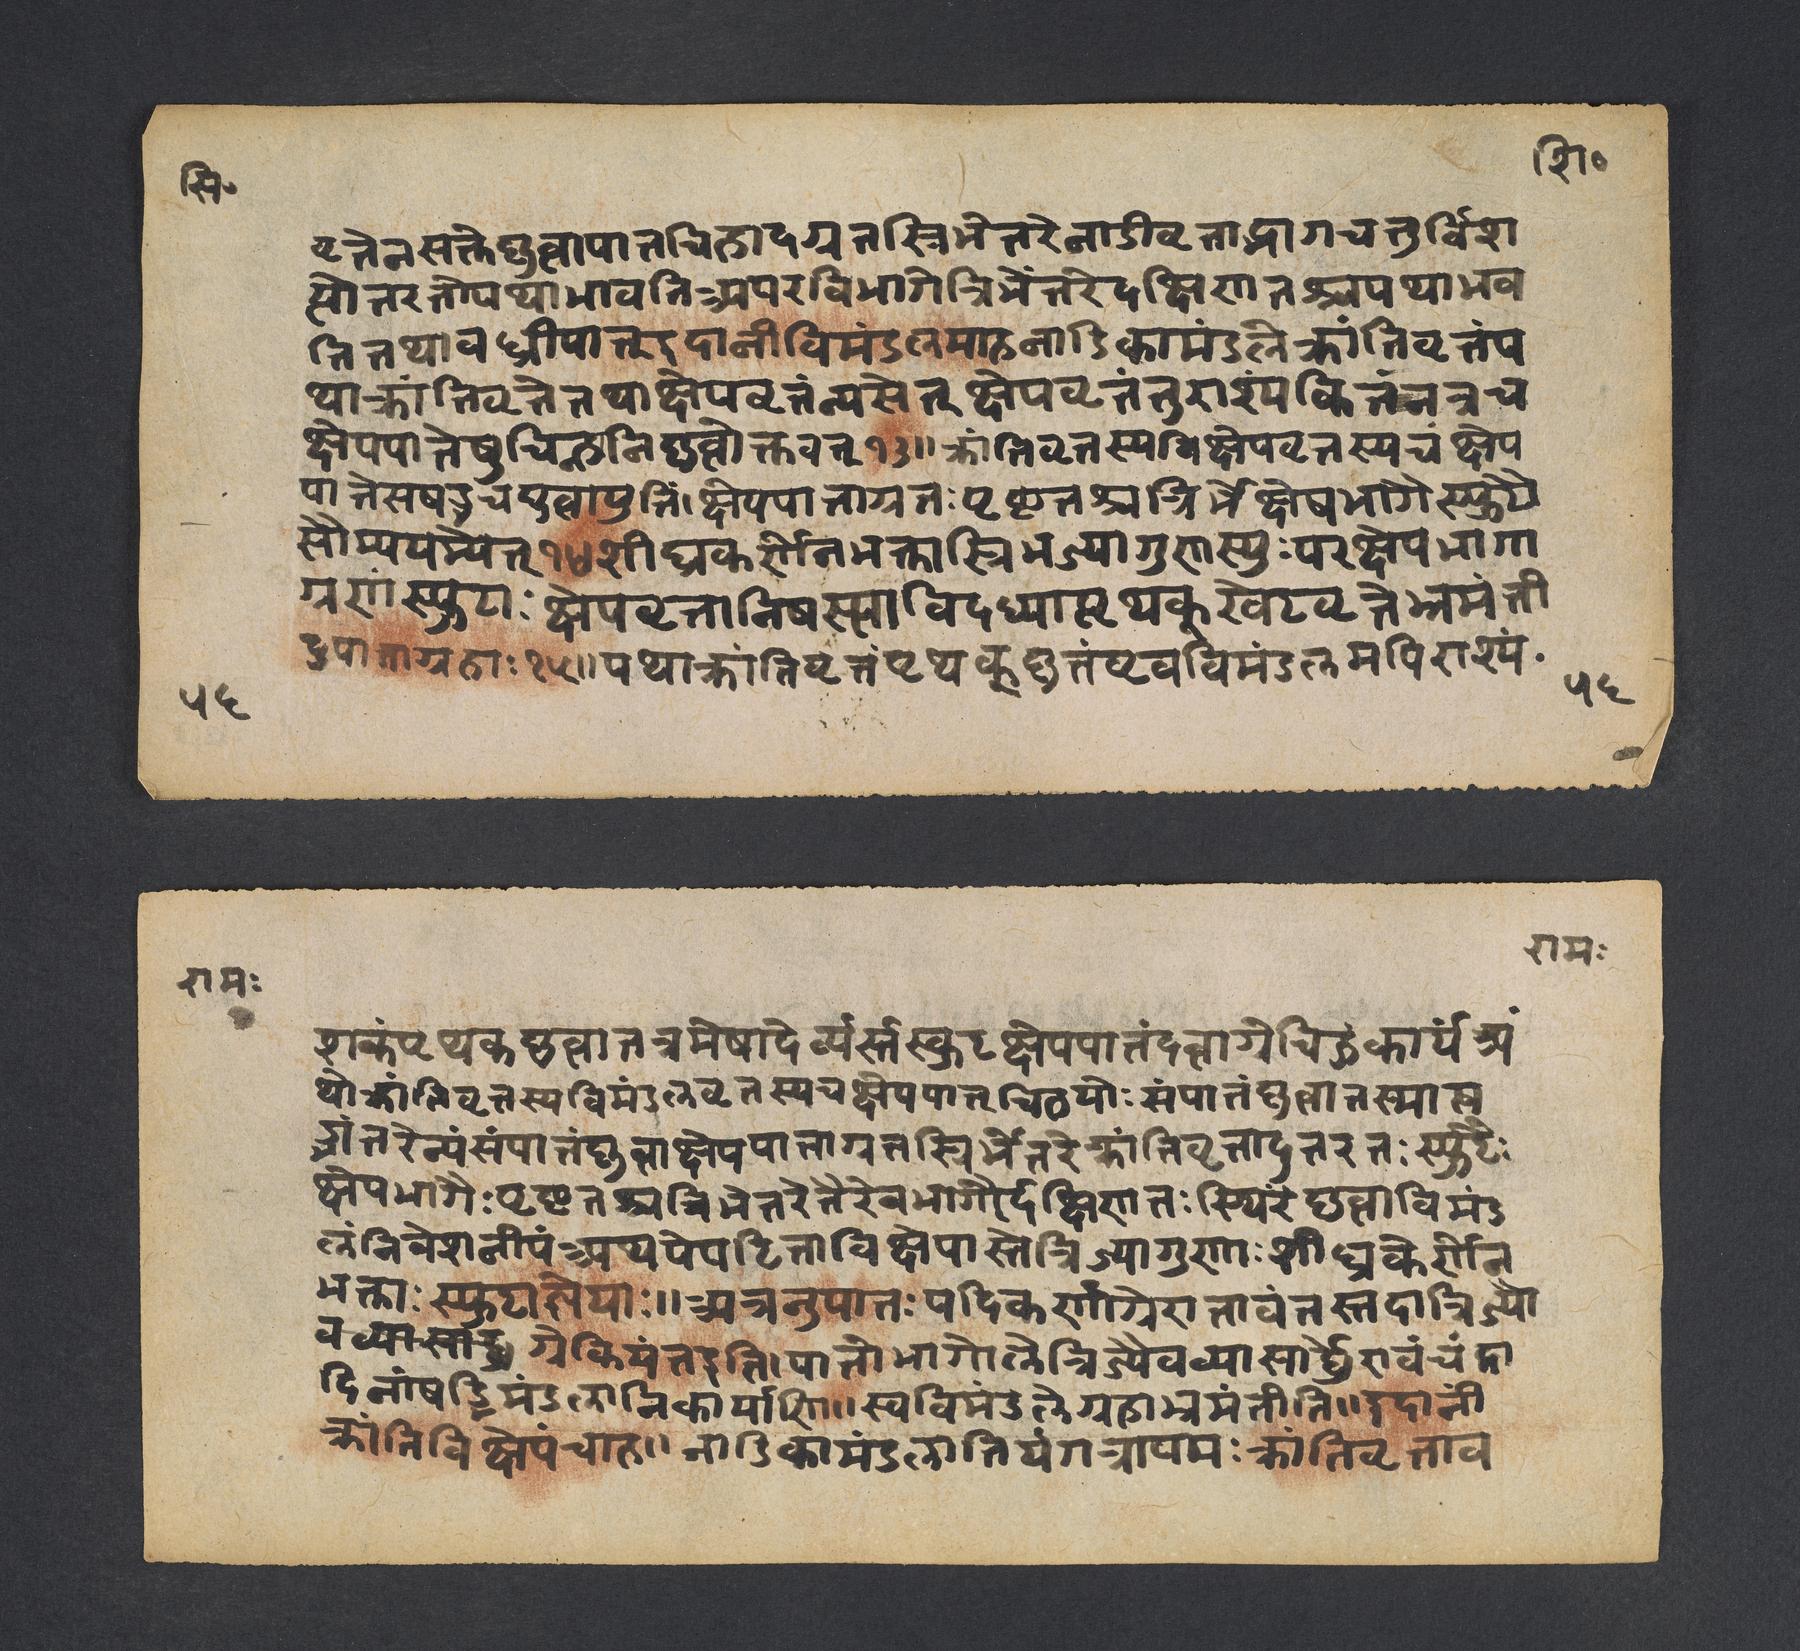 सि॰
शि॰
वृत्तेन सक्ते कृत्वा पातचिह्नादग्रतस्त्रिभेंतरे नाडीवृत्ताद्भागचतुर्विंश
त्योत्तरतो यथा भवति अपरविभागे त्रिभेंतरे दक्षिणतश्च यथा भव
ति तथा वध्नीयात् इदानीं विमंडलमाह नाडिकामंडले क्रांतिवृत्तं य
था क्रांतिवृत्ते तथा क्षेपवृत्तं न्यसेत् क्षेपवृत्तं तु राश्यंकितं तत्र च
क्षेपपातेषु चिह्नानि कृत्वोक्तवत् १३॥ क्रांतिवृत्तस्य विक्षेपवृत्तस्य च क्षेप
पाते सषड्भे च कृत्वा युतिं। क्षेपपाताग्रतः पृष्ठतश्च त्रिभे क्षेषभागैस्फुटैः
सौम्ययाम्ये न्यसेत् १४ शीघ्रकर्णेन भक्तास्त्रिभज्यागुणास्युः परक्षेपभागा
ग्रहाणां स्फुटाः क्षेपवृत्तानि षस्मां विदध्यात्पृथक् स्वेटवृत्ते भ्रमंती
दुपाताग्रहाः १५॥ यथा क्रांतिवृत्तं पृथक् कृतं एव विमंडलमपि राश्यं॰
५६
५६
रामः
रामः
शकं पृथक् कृत्वा तत्र मेषादेर्व्यस्तं स्फुटक्षेपपातं दत्वाग्रे चिह्नं कार्यं अ
थो क्रांतिवृत्तस्य विमंडलवृत्तस्य च क्षेपपातचिह्नयोः संपातं कृत्वा तस्मात्ष
ड्भांतरेन्यं संपातं कृत्वा क्षेपपाताग्रतस्त्रिभेंतरे क्रांतिवृत्तादुत्तरतः स्फुटैः
क्षेपभागैः पृष्ठतश्च त्रिभेतरे तैरेव भागैर्दक्षिणतः स्थिरं कृत्वा विमंड
लं निवेशनीयं अथ ये पठिता विक्षेपास्ते त्रिज्यागुणाः शीघ्रकर्णेन
भक्ताः स्फुटा ज्ञेयाः॥ अत्रानुपातः यदि कर्णाग्रे एतावंतस्तदा त्रिज्या
व्यासार्द्धाग्रे कियंत इति। पातो भागोले त्रिज्यैव व्यासार्द्धं एवं चंद्रा
दिनां षड्विमंडलानि कार्याणि॥ स्वविमंडले ग्रहा भ्रमंतीति॥ इदानीं
क्रांतिविक्षेपं चाह॥ नाडिकामंडलात्तिर्यगत्रापमः क्रांतिवृत्ताव